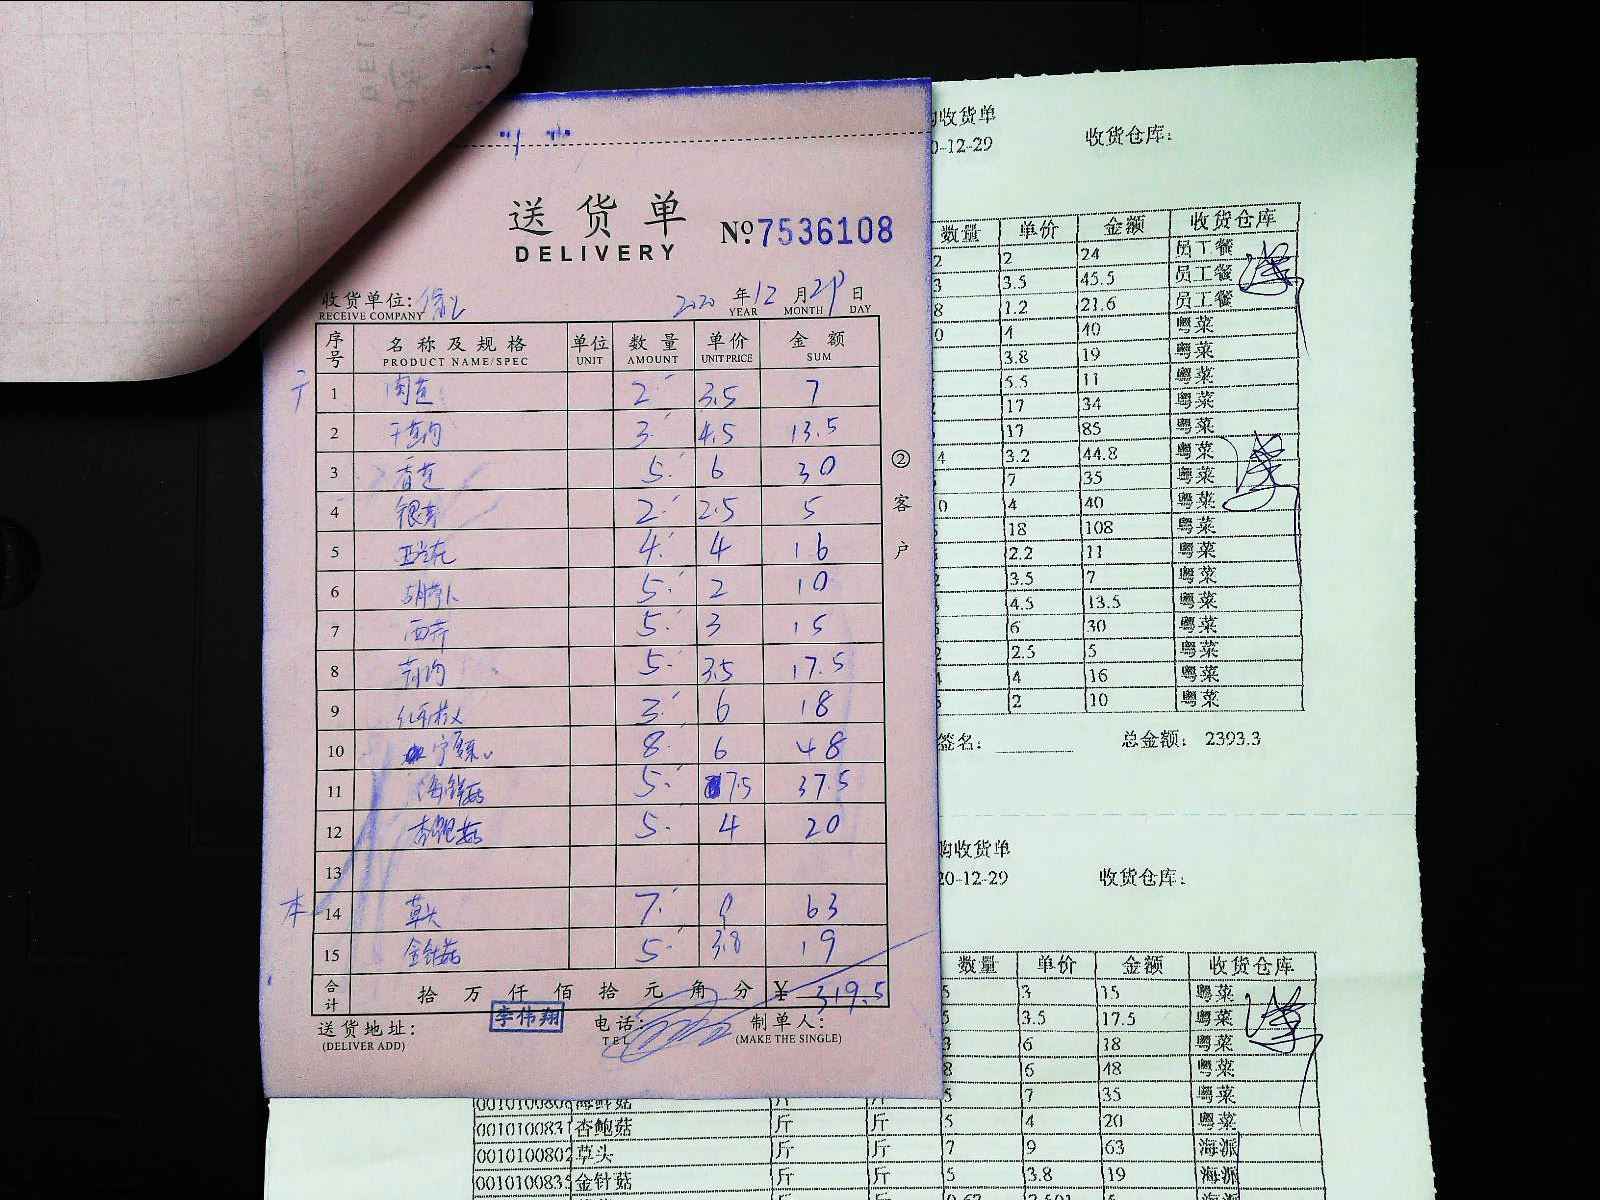 送货单
DELIVERY
No 7536108
收货单位:
RECEIVE COMPANY
2020 年 12 月 29 日
YEAR MONTH DAY
序号 名称及规格 单位 数量 单价 金额
PRODUCT NAME/SPEC UNIT AMOUNT UNIT PRICE SUM
1 2 3.5 7
2 3 4.5 13.5
3 香芒 5 6 30
4 银芽 2 2.5 5
5 4 4 16
6 胡萝卜 5 2 10
7 西芹 5 3 15
8 5 3.5 17.5
9 3 6 18
10 8 6 48
11 海鲜菇 5 7.5 37.5
12 杏鲍菇 5 4 20
13
本 14 草头 7 9 63
15 金针菇 5 3.8 19
合计 拾万仟佰拾元角分 ¥ 319.5
②客户
送货地址: 李伟翔 电话: 制单人:
(DELIVER ADD) TEL (MAKE THE SINGLE)
购收货单
0-12-29 收货仓库:
数量 单价 金额 收货仓库
2 2 24 员工餐
3 3.5 45.5 员工餐
8 1.2 21.6 员工餐
0 4 40 粤菜
3.8 19 粤菜
5.5 11 粤菜
17 34 粤菜
17 85 粤菜
4 3.2 44.8 粤菜
7 35 粤菜
0 4 40 粤菜
18 108 粤菜
2.2 11 粤菜
3.5 7 粤菜
4.5 13.5 粤菜
6 30 粤菜
2 2.5 5 粤菜
4 16 粤菜
2 10 粤菜
签名: 总金额: 2393.3
购收货单
20-12-29 收货仓库:
数量 单价 金额 收货仓库
5 3 15 粤菜
5 3.5 17.5 粤菜
3 6 18 粤菜
8 6 48 粤菜
0010100808 海鲜菇 斤 斤 5 7 35 粤菜
001010083 杏鲍菇 斤 斤 5 4 20 粤菜
0010100802 草头 斤 斤 7 9 63 海派
001010083 金针菇 斤 斤 5 3.8 19 海派